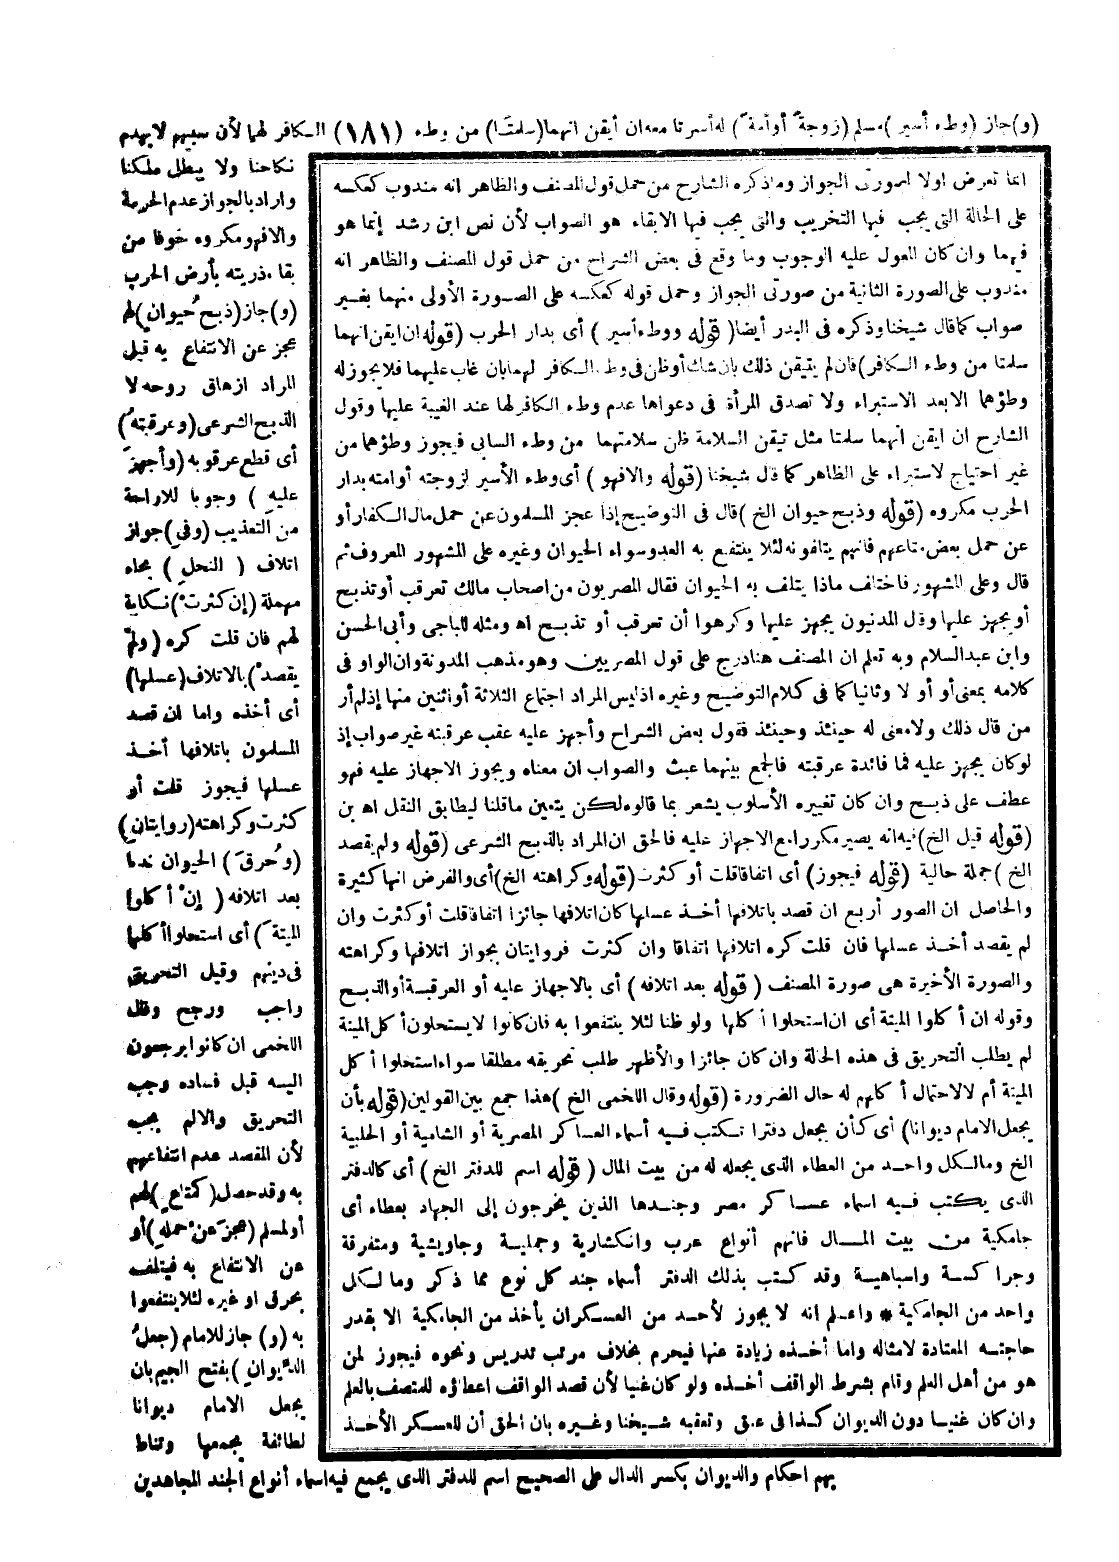 (و) جاز (وطء أسير) مسلم (زوجة أو أمة) له أسرتا معه ان أيقن انهما (سلمتا) من وطء (١٨١) الكافر لهما لأن سبيهم لا يهدم
نكاحنا ولا يبطل ملكنا
وأراد بالجواز عدم الحرمة
والا فهو مكروه خوفا من
بقاء ذريته بأرض الحرب
(و) جاز (ذبح حيوان) لهم
عجز عن الانتفاع به قيل
المراد ازهاق روحه لا
الذبح الشرعى (وعرقبته)
أى قطع عرقوبه (وأجهز
عليه) وجوبا للاراحة
من التعذيب (وفى) جواز
اتلاف (النحل) بحاء
مهملة (إن كثرت) نكاية
لهم فان قلت كره (ولم
يقصد) بالاتلاف (عسلها)
أى أخذه واما ان قصد
المسلمون باتلافها أخذ
عسلها فيجوز قلت أو
كثرت وكراهته (روايتان)
(وحرق) الحيوان ندبا
بعد اتلافه (إن أكلوا
الميتة) أى استحلوا أكلها
فى دينهم وقيل التحريق
واجب ورجح وقال
اللخمى ان كانوا يرجعون
اليه قبل فساده وجب
التحريق والا لم يجب
لأن المقصد عدم انتفاعهم
به وقد حصل (كمتاع) لهم
أو لمسلم (عجز عن حمله) أو
عن الانتفاع به فيتلف
بحرق او غيره لئلا ينتفعوا
به (و) جاز للامام (جعل
الديوان) بفتح الجيم بان
يجعل الامام ديوانا
لطائفة يجمعها وتناط
بهم احكام والديوان بكسر الدال على الصحيح اسم للدفتر الذى يجمع فيه اسماء أنواع الجند المجاهدين
انما تعرض اولا لصورتى الجواز وما ذكره الشارح من حمل قول المصنف والظاهر انه مندوب كعكسه
على الحالة التى يجب فيها التخريب والتى يجب فيها الابقاء هو الصواب لأن نص ابن رشد إنما هو
فيهما وان كان المعول عليه الوجوب وما وقع فى بعض الشراح من حمل قول المصنف والظاهر انه
مندوب على الصورة الثانية من صورتى الجواز وحمل قوله كعكسه على الصورة الأولى منهما بغير
صواب كما قال شيخنا وذكره فى البدر أيضا (قوله ووطء أسير) أى بدار الحرب (قوله ان ايقن انهما
سلمتا من وطء الكافر) فان لم يتيقن ذلك بان شك أو ظن فى وطء الكافر لهما بان غاب عليهما فلا يجوز له
وطؤهما الا بعد الاستبراء ولا تصدق المرأة فى دعواها عدم وطء الكافر لها عند الغيبة عليها وقول
الشارح ان ايقن انهما سلمتا مثل تيقن السلامة ظن سلامتهما من وطء السابى فيجوز وطؤهما من
غير احتياج لاستبراء على الظاهر كما قال شيخنا (قوله والا فهو) أى وطء الأسير لزوجته أو امته بدار
الحرب مكروه (قوله وذبح حيوان الخ) قال فى التوضيح إذا عجز المسلمون عن حمل مال الكفار أو
عن حمل بعض متاعهم فانهم يتلفونه لئلا ينتفع به العدو سواء الحيوان وغيره على المشهور المعروف ثم
قال وعلى المشهور فاختلف ماذا يتلف به الحيوان فقال المصريون من اصحاب مالك تعرقب أو تذبح
أو يجهز عليها وقال المدنيون يجهز عليها وكرهوا أن تعرقب أو تذبح اه ومثله للباجى وأبى الحسن
وابن عبد السلام وبه تعلم ان المصنف هنا درج على قول المصريين وهو مذهب المدونة وان الواو فى
كلامه بمعنى أو أولا وثانيا كما فى كلام التوضيح وغيره اذ ليس المراد اجتماع الثلاثة أو اثنين منها إذ لم أر
من قال ذلك ولا معنى له حينئذ وحينئذ فقول بعض الشراح وأجهز عليه عقب عرقبته غير صواب إذ
لو كان يجهز عليه فما فائدة عرقبته فالجمع بينهما عبث والصواب ان معناه ويجوز الاجهاز عليه فهو
عطف على ذبح وان كان تغييره الأسلوب يشعر بما قالوه لكن يتعين ما قلنا ليطابق النقل اه بن
(قوله قيل الخ) فيه انه يصير مكررا مع الاجهاز عليه فالحق ان المراد بالذبح الشرعى (قوله ولم يقصد
الخ) جملة حالية (قوله فيجوز) أى اتفاقا قلت أو كثرت (قوله وكراهته الخ) أى والفرض انها كثيرة
والحاصل ان الصور أربع ان قصد باتلافها أخذ عسلها كان اتلافها جائزا اتفاقا قلت أو كثرت وان
لم يقصد أخذ عسلها فان قلت كره اتلافها اتفاقا وان كثرت فروايتان بجواز اتلافها وكراهته
والصورة الأخيرة هى صورة المصنف (قوله بعد اتلافه) أى بالاجهاز عليه أو العرقبة أو الذبح
وقوله ان أكلوا الميتة أى ان استحلوا أكلها ولو ظنا لئلا ينتفعوا به فان كانوا لا يستحلون أكل الميتة
لم يطلب التحريق فى هذه الحالة وان كان جائزا والأظهر طلب تحريقه مطلقا سواء استحلوا أكل
الميتة أم لا لاحتمال أكلهم له حال الضرورة (قوله وقال اللخمى الخ) هذا جمع بين القولين (قوله بأن
يجعل الامام ديوانا) أى كأن يجعل دفترا تكتب فيه أسماء العساكر المصرية أو الشامية أو الحلبية
الخ وما لكل واحد من العطاء الذى يجعله له من بيت المال (قوله اسم للدفتر الخ) أى كالدفتر
الذى يكتب فيه اسماء عساكر مصر وجندها الذين يخرجون إلى الجهاد بعطاء أى
جامكية من بيت المال فانهم أنواع عرب وانكشارية وجملية وجاويشية ومتفرقة
وجراكسة واسباهية وقد كتب بذلك الدفتر أسماء جند كل نوع مما ذكر وما لكل
واحد من الجامكية * واعلم انه لا يجوز لأحد من العسكر ان يأخذ من الجامكية الا بقدر
حاجته المعتادة لامثاله واما أخذه زيادة عنها فيحرم بخلاف مرتب تدريس ونحوه فيجوز لمن
هو من أهل العلم وقام بشرط الواقف أخذه ولو كان غنيا لأن قصد الواقف اعطاؤه للمتصف بالعلم
وان كان غنيا دون الديوان كذا فى عبق وتعقبه شيخنا وغيره بان الحق أن للعسكر الأخذ